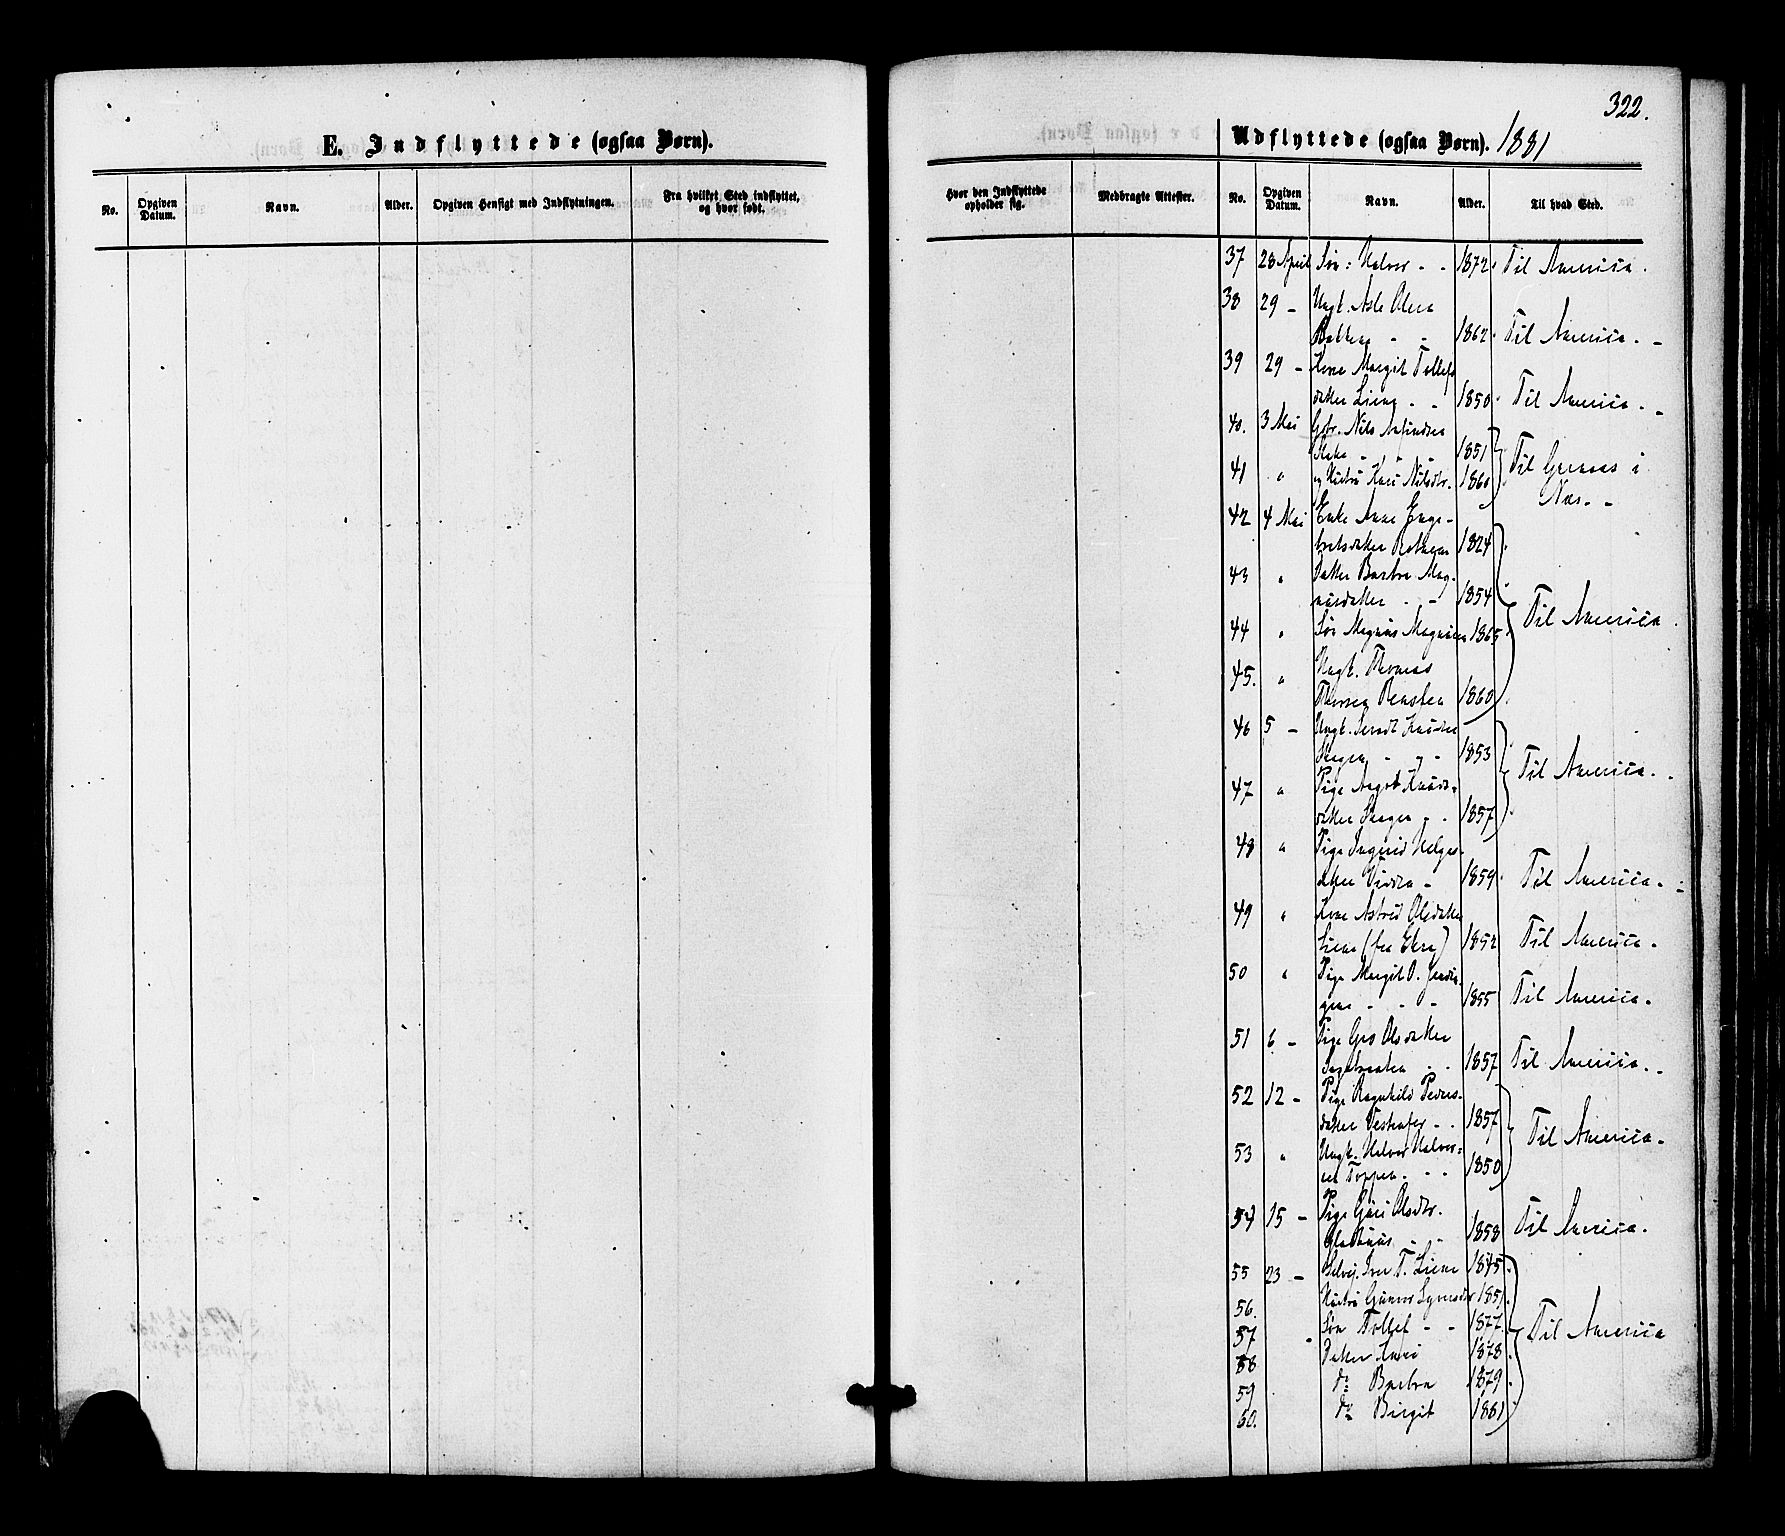 322.
E. Indflyttede (ogsaa Børn).
No.
Opgiven Datum.
Navn.
Alder.
Opgiven Hensigt med Indflytningen.
Fra hvilket Sted indflyttet, og hvor født.
Udflyttede (ogsaa Børn). 1881
Hvor den Indflyttede opholder sig.
Medbragte Attester.
No.
Opgiven Datum.
Navn.
Alder.
Til hvad Sted.
37 28 April Søn: Halvor - - 1872. Til America.
38 29 - Ungk. Asle Olsen
Bakken - - 1862. Til America. -
39 29 - Kone Margit Tollefs
datter Liene - - 1850. Til America. -
40. 3 Mai Gbr. Nils Amundsen
- - - 1851
41 " og Hustru Kari Nilsdtr. 1860 Til i
Næs. -
42 4 Mai Enke Anne Enge-
bretsdatter 1824
43 " Datter Barbro Mag-
nusdatter - - 1854 Til America.
44 " Søn Magnus Magnusen 1865
45. " Ungk. Thomas
Thorsen 1860
46 5 - Ungk. Knudsen
Skogen - - - 1853 Til America.
47 " Pige Aagot Knuds-
datter Skogen - - 1857
48 " Pige Ingerid Helges-
datter - 1859. Til America. -
49 " Kone Astrid Olsdatter
Liene (fra ) 1852 Til America.
50 " Pige Margit O.
- - - 1855 Til America.
51 6 - Pige Gro Olsdatter
- - 1857 Til America. -
52 12 - Pige Ragnhild Peders-
datter - - 1857 Til America.
53 " Ungk. Halvor Halvor-
sen Toppen. - - 1850
54 15 - Pige Guri Olsdtr.
- - 1858 Til America.
55 23 - Selvej. Iver T. Liene 1845
56. Hustru Gunvor 1851.
57 " Søn Tollef - - 1877. Til America
58 Datter Kari 1878.
59 do Barbro 1879.
60. do Birgit 1881